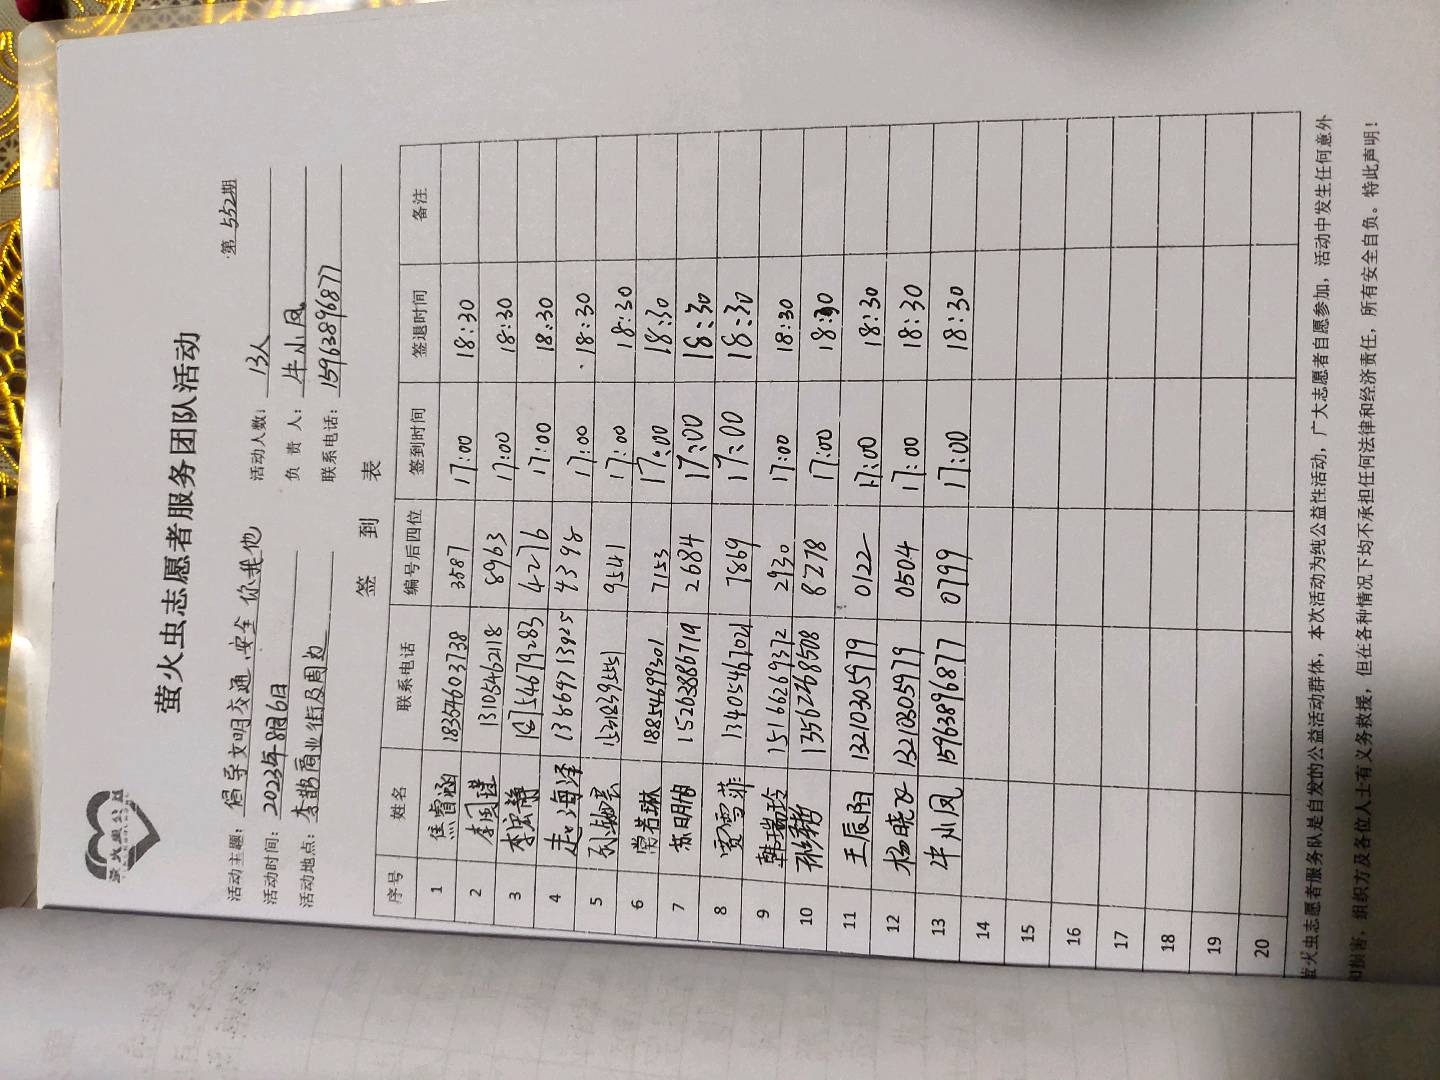 萤火虫公益
萤火虫志愿者服务团队活动
第 552期
活动主题: 倡导文明交通,安全你我他 活动人数: 13人
活动时间: 2023年8月6日 负 责 人: 牛小凤
活动地点: 李鹊商业街及周边 联系电话: 15963896877
签 到 表
序号 姓名 联系电话 编号后四位 签到时间 签退时间 备注
1 焦睿涵 18354603738 3587 17:00 18:30
2 李国斌 13105462118 8963 17:00 18:30
3 李宏静 54679283 4276 17:00 18:30
4 赵海泽 13864713925 4398 17:00 18:30
5 9541 17:00 18:30
6 常若琳 18854699301 7153 17:00 18:30
7 苏明帅 15263886719 2684 17:00 18:30
8 贾雪菲 13405467021 7869 17:00 18:30
9 韩瑞玲 15166269372 2930 17:00 18:30
10 13562268508 8278 17:00 18:30
11 王辰阳 13210305979 0122 17:00 18:30
12 杨晓飞 13210305979 0504 17:00 18:30
13 牛小凤 15963896877 0799 17:00 18:30
14
15
16
17
18
19
20
萤火虫志愿者服务队是自发的公益活动群体，本次活动为纯公益性活动，广大志愿者自愿参加，活动中发生任何意外
和损害，组织方及各位人士有义务救援，但在各种情况下均不承担任何法律和经济责任，所有安全自负。特此声明！